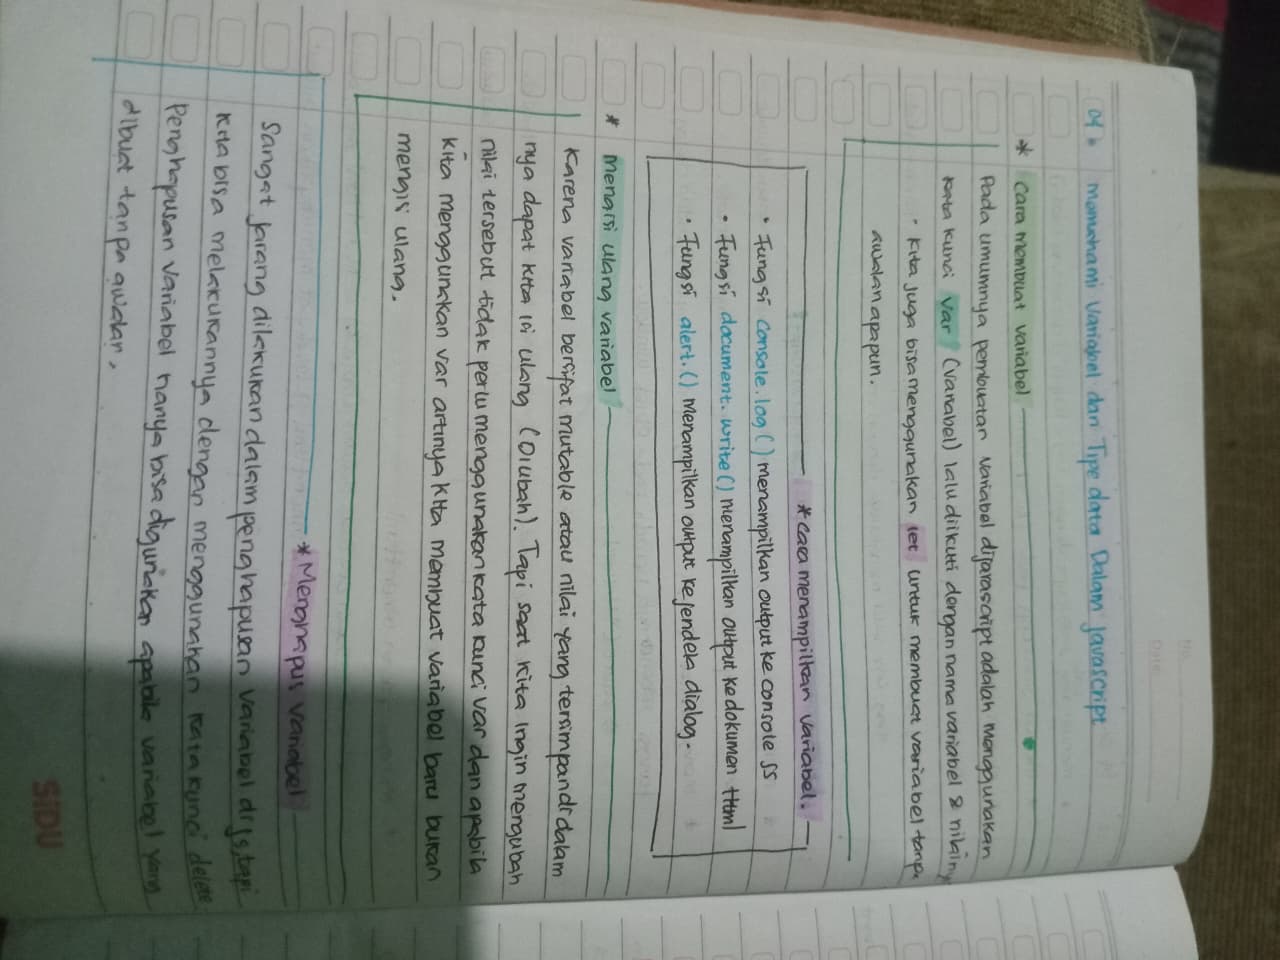 04. Memahami Variabel dan Tipe data Dalam Javascript
* Cara membuat variabel
Pada umumnya pembuatan variabel dijavascript adalah menggunakan
kata kunci var (variabel) lalu diikuti dengan nama variabel & nilainy
• Kita juga bisa menggunakan let untuk membuat variabel tanpa
awalan apapun.
* Cara menampilkan variabel.
• Fungsi console.log() menampilkan output ke console JS
• Fungsi document.write() menampilkan output ke dokumen Html
• Fungsi alert.() menampilkan output ke jendela dialog.
* Mengisi ulang variabel
Karena variabel bersifat mutable atau nilai yang tersimpan di dalam
nya dapat kita isi ulang (Diubah). Tapi saat kita ingin mengubah
nilai tersebut tidak perlu menggunakan kata kunci var dan apabila
kita menggunakan var artinya kita membuat variabel baru bukan
mengisi ulang.
* Menghapus variabel
Sangat jarang dilakukan dalam penghapusan variabel di js, tapi
kita bisa melakukannya dengan menggunakan kata kunci delete
Penghapusan variabel hanya bisa digunakan apabila variabel yang
dibuat tanpa awalan.
No.
Date
SIDU